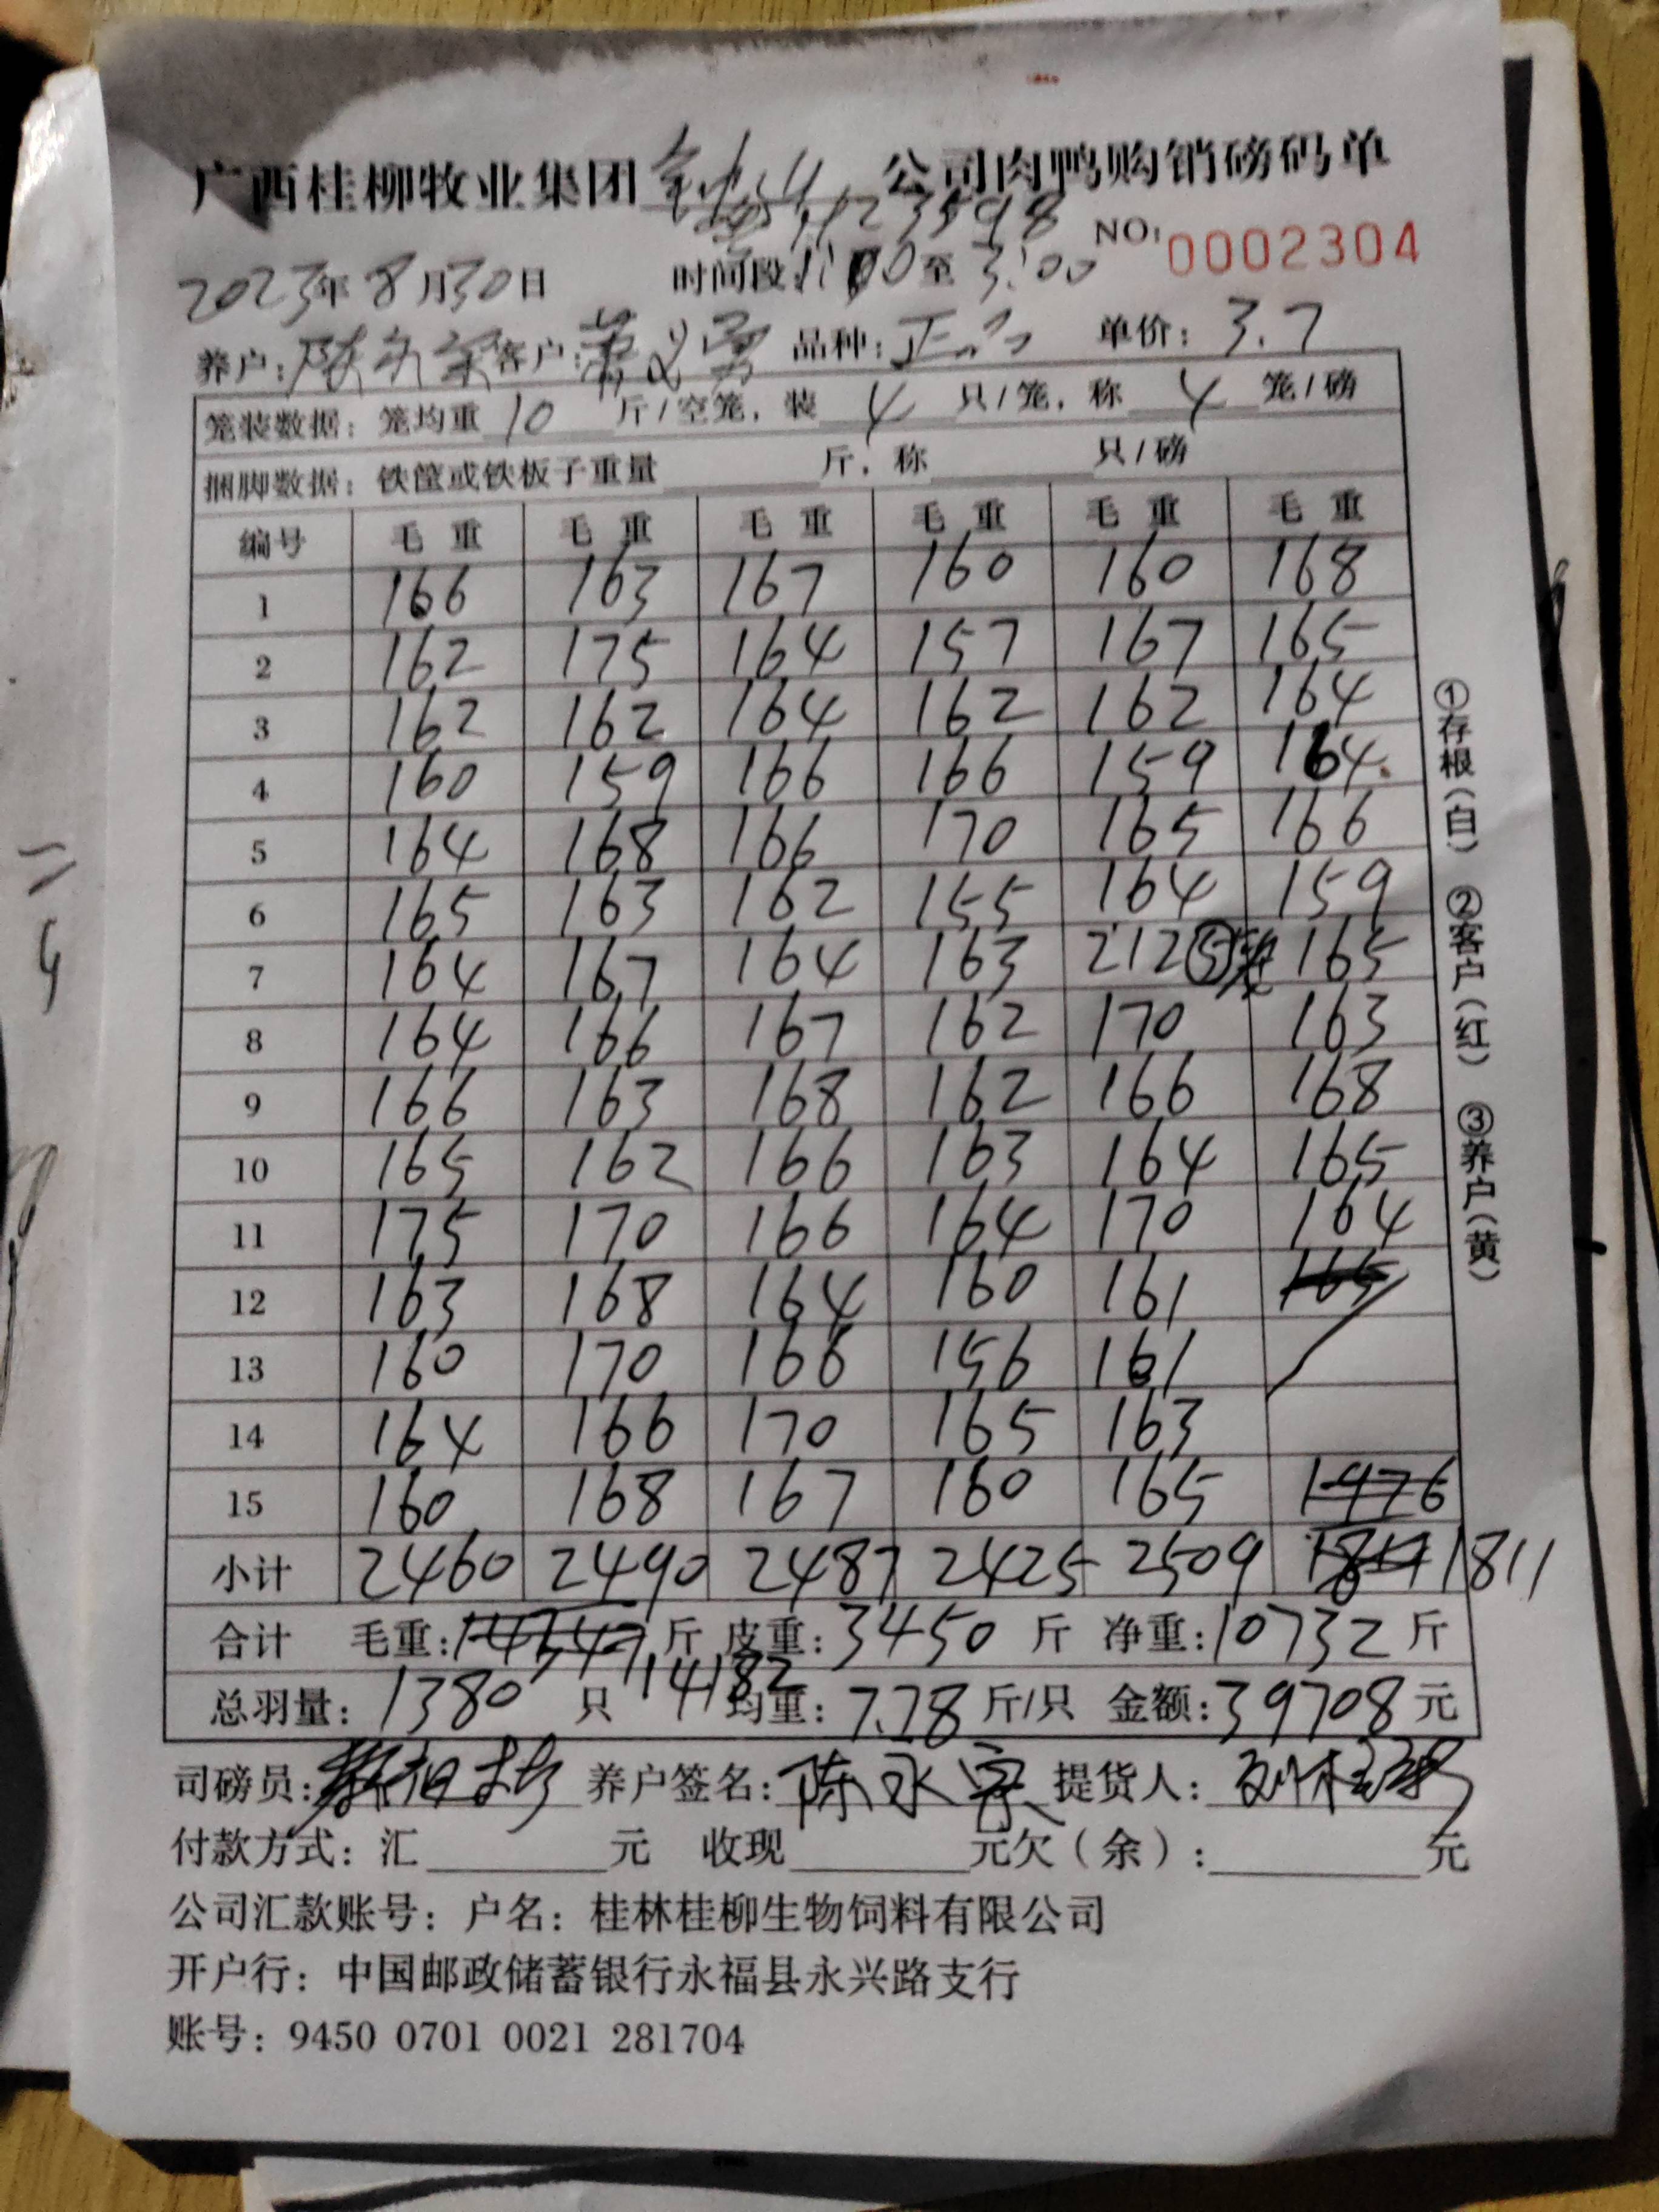 广西桂柳牧业集团 公司肉鸭购销磅码单
NO: 0002304
2023年8月30日 时间段 至3:00
养户: 客户: 品种:正品 单价:3.7
笼装数据:笼均重10斤/空笼,装4只/笼,称4笼/磅
捆脚数据:铁筐或铁板子重量 斤,称 只/磅
编号 毛重 毛重 毛重 毛重 毛重 毛重
1 166 163 167 160 160 168
2 162 175 164 157 167 165
3 162 162 164 162 162 164
4 160 159 166 166 159 164
5 164 168 166 170 165 166
6 165 163 162 155 164 159
7 164 167 164 163 212⑤笼 165
8 164 166 167 162 170 163
9 166 163 168 162 166 168
10 165 162 166 163 164 165
11 175 170 166 164 170 164
12 163 168 164 160 161 165
13 160 170 166 156 161
14 164 166 170 165 163
15 160 168 167 160 165 1476
小计 2460 2490 2487 2425 2509 1811
合计 毛重:14347斤 皮重:3450斤 净重:10732斤
14182
总羽量:1380只 均重:7.78斤/只 金额:39708元
司磅员: 养户签名:陈永 提货人:
付款方式:汇 元 收现 元欠(余): 元
公司汇款账号:户名:桂林桂柳生物饲料有限公司
开户行:中国邮政储蓄银行永福县永兴路支行
账号:9450 0701 0021 281704
①存根(白) ②客户(红) ③养户(黄)